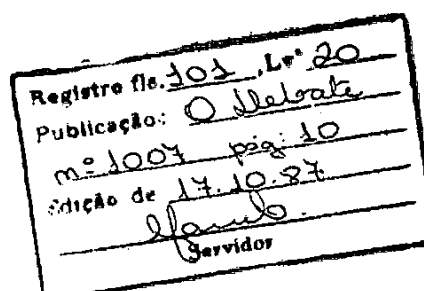 Registro fls. 101 , Lvº 20
Publicação: O Debate
nº 1007 pág: 10
Edição de 17.10.87
Servidor